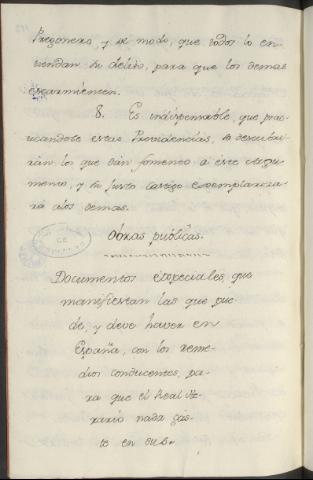 Pregonero, y de modo, que todos lo en-
tiendan su delito, para que los demas
escarmienten.
8. Es indispensable, que prac-
ticandose estas Providencias, se descubri-
rán los que dán fomento à este
mento, y su justo castigo exemplariza-
rá alos demas.
Obras públicas.
Documentos especiales, que
manifiestan las que pue-
de, y deve haver en
España, con los reme-
dios conducentes, pa-
ra que el Real He-
rario nada gás-
te en sus.